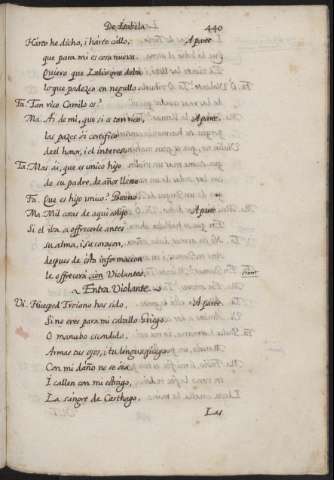 440
Harto he dicho, i harto callo, Aparte
que para mi es cosa nueva.
Quiero que
lo que padezco en
Ta. Tan rico Camilo es?
Ma. Ai de mi, que si es tan rico, Aparte
las pazes
del honor, i el interes.
Ta. Mas ai, que es unico hijo
de su padre, de años lleno
Fa. Que es hijo unico? Bueno.
Ma. Mil cosas de aqui colijo Aparte
Si el iba a offrecerle antes
su alma, i su coraçon,
despues de esta informacion
le offrecerá con Violantes.
Entra Violante.
Vi. Huesped Troiano has sido, Aparte
Si no eres para mi caballo Griego.
O manubio escondido,
Armas tus ojos, i tu lengua fuego
Con mi daño no se vea
I callen con mi estrago,
La sangre de Carthago.
La